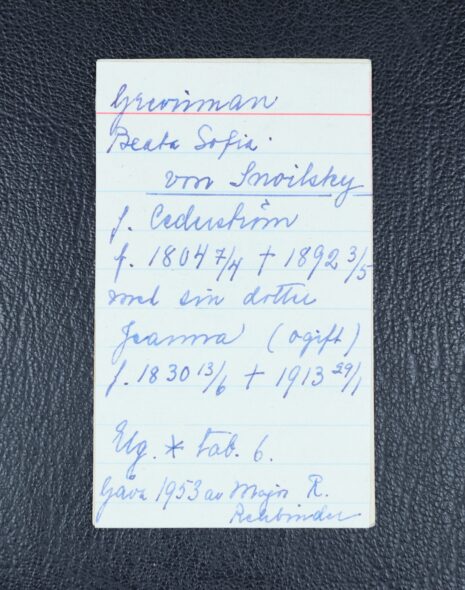 Grevinnan
Beata Sofia
von Snoilsky
f. Cederström
f. 1804 7/4 † 1892 3/5
med sin dotter
Jeanna (ogift)
f. 1830 13/6 † 1913 29/1
Elg. * tab. 6.
Gåva 1953 av Major R.
Rehbinder